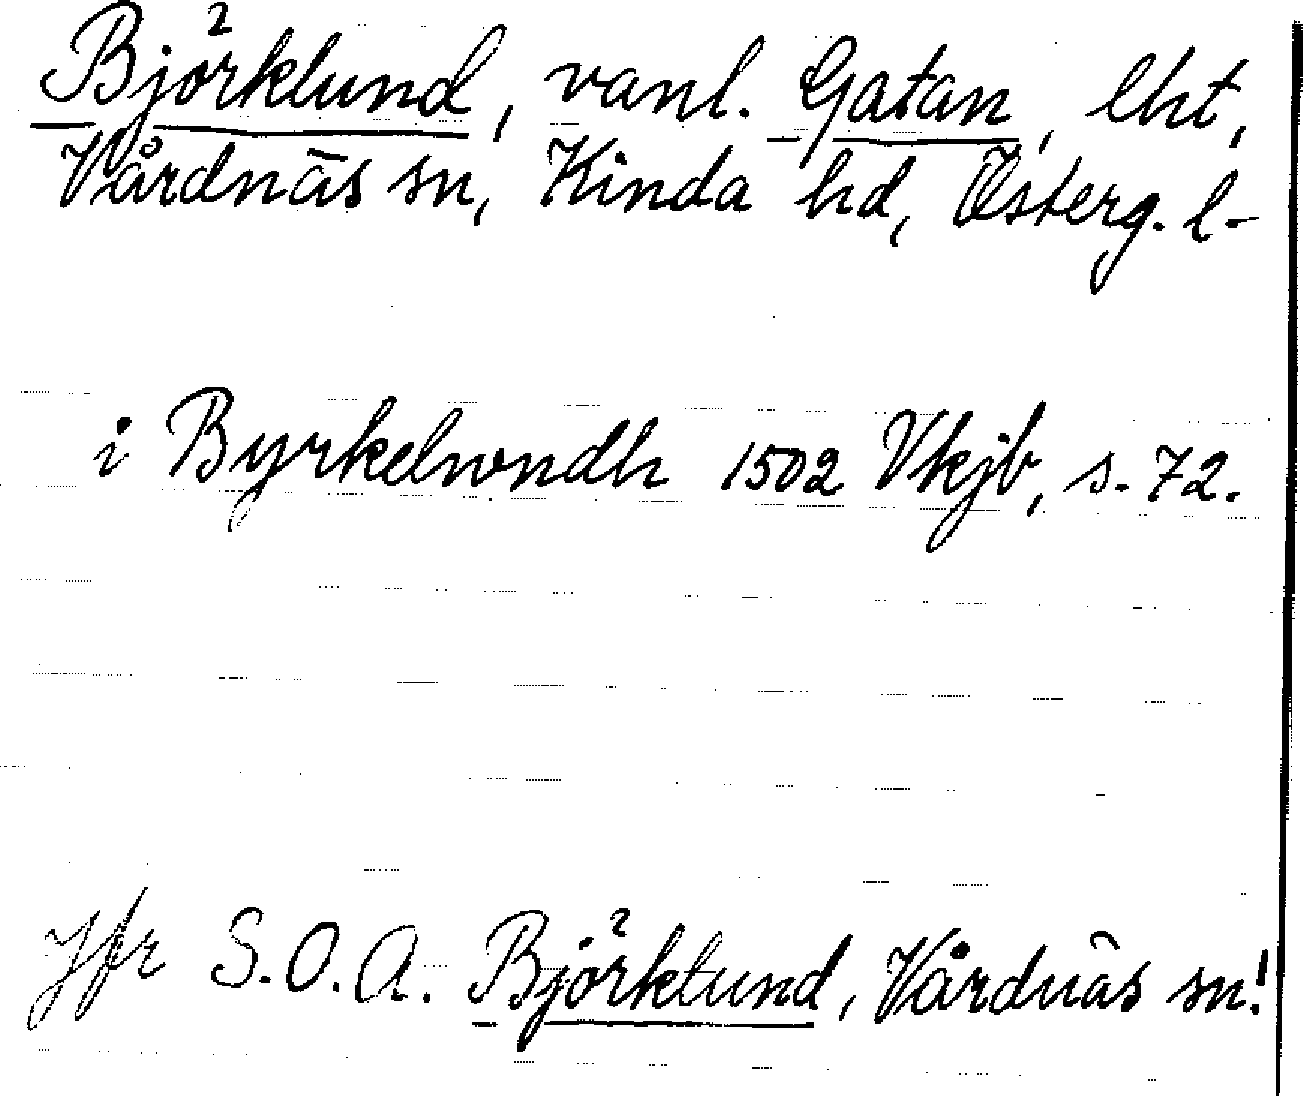 Björklund, vanl. Gatan, lht,
Vårdnäs sn, Kinda hd, Österg. l.
i Byrkelwndh 1502 Vkjb, s. 72.
Jfr S.O.A. Björklund, Vårdnäs sn!